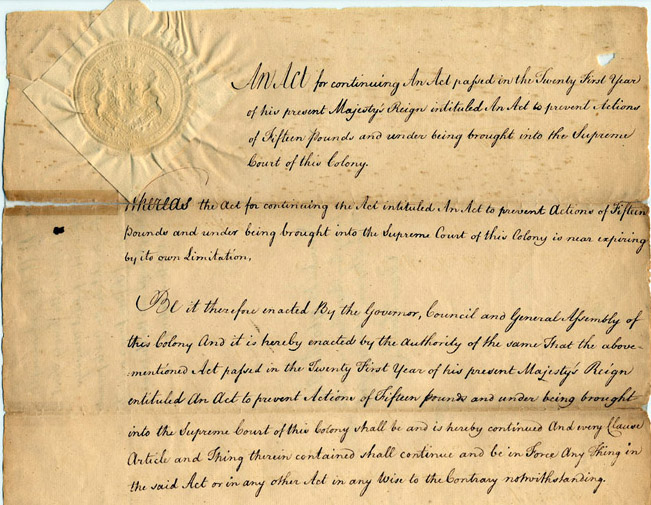 An Act for continuing An Act passed in the Twenty First Year
of his present Majesty's Reign intituled An Act to prevent Actions
of Fifteen Pounds and under being brought into the Supreme
Court of this Colony.
Whereas the Act for continuing the Act intituled An Act to prevent Actions of Fifteen
Pounds and under being brought into the Supreme Court of this Colony is near expiring
by its own Limitation,
Be it therefore enacted By the Governor, Council and General Assembly of
this Colony And it is hereby enacted by the Authority of the same That the above-
mentioned Act passed in the Twenty First Year of his present Majesty's Reign
entituled An Act to prevent Actions of Fifteen Pounds and under being brought
into the Supreme Court of this Colony shall be and is hereby continued And every Clause
Article and Thing therein contained shall continue and be in Force Any Thing in
the said Act or in any other Act in any Wise to the Contrary notwithstanding.